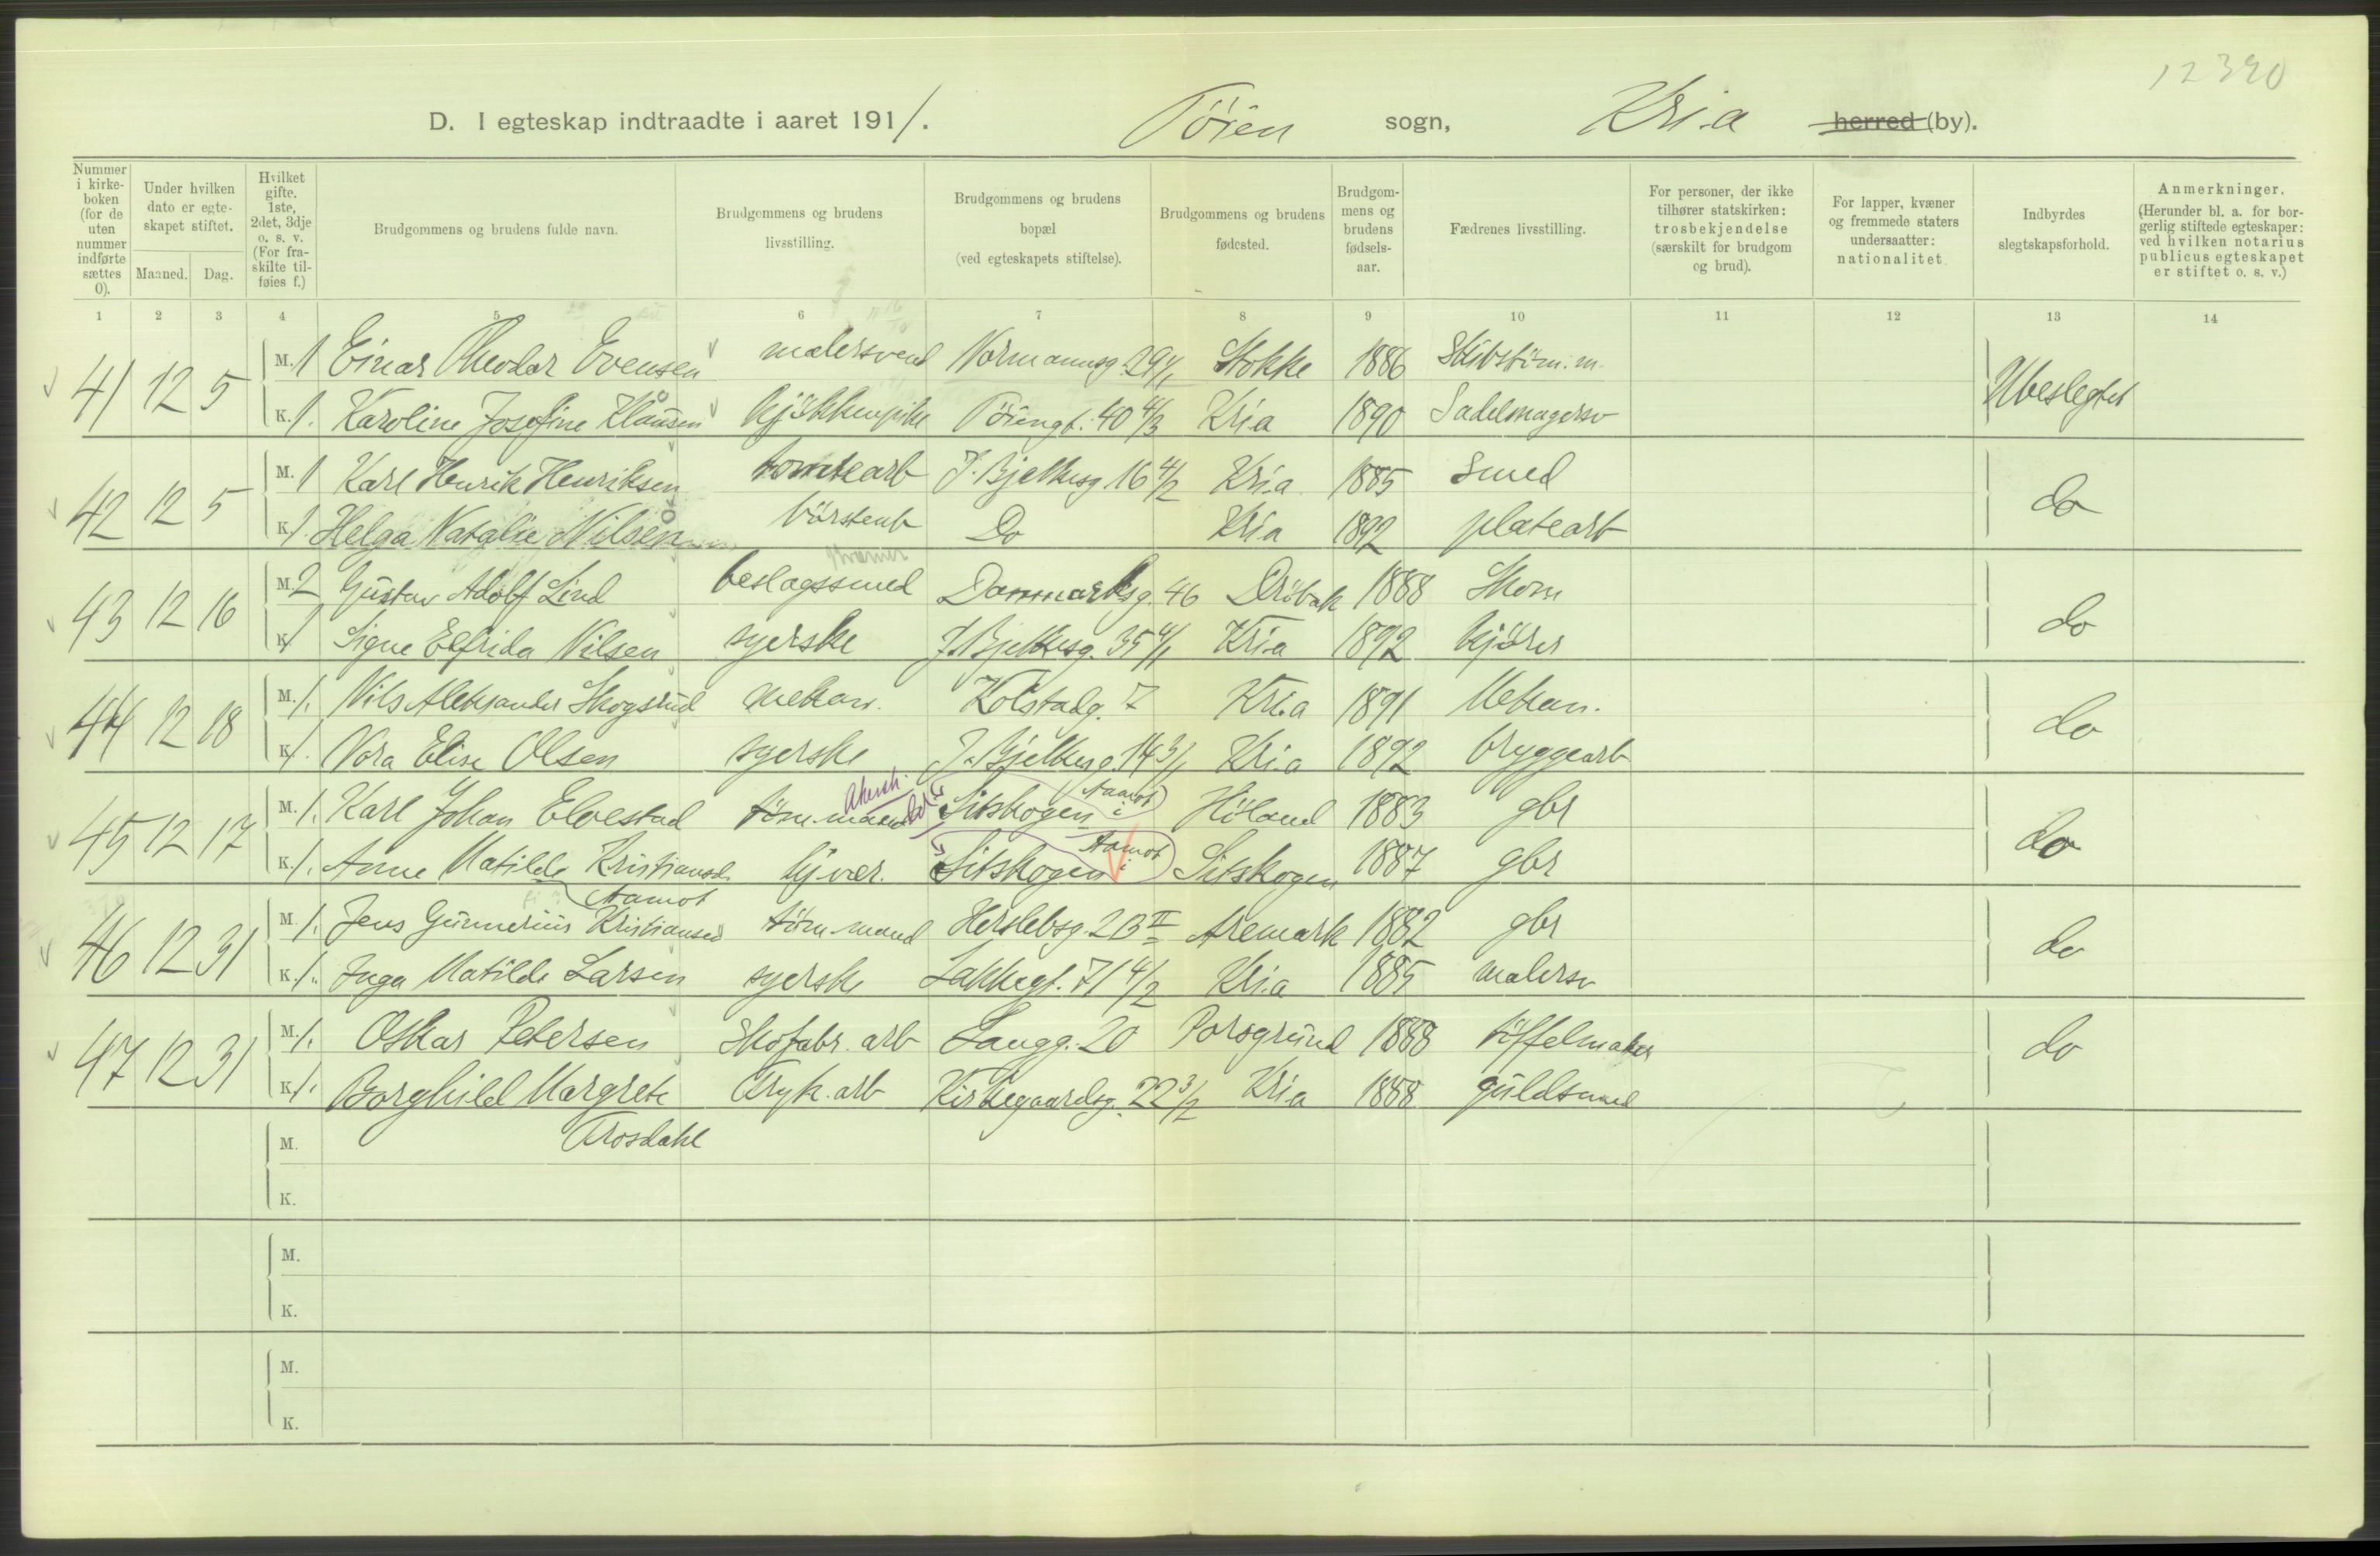 12390
D. I egteskap indtraadte i aaret 1911. Töien sogn, Kria herred (by).
Nummer i kirkeboken (for de uten nummer indførte sættes 0).
Under hvilken dato er egteskapet stiftet.
Maaned. Dag.
Hvilket gifte. 1ste, 2det, 3dje o. s. v. (For fraskilte tilføies f.)
Brudgommens og brudens fulde navn.
Brudgommens og brudens livsstilling.
Brudgommens og brudens bopæl (ved egteskapets stiftelse).
Brudgommens og brudens fødested.
Brudgommens og brudens fødselsaar.
Fædrenes livsstilling.
For personer, der ikke tilhører statskirken: trosbekjendelse (særskilt for brudgom og brud).
For lapper, kvæner og fremmede staters undersaatter: nationalitet.
Indbyrdes slegtskapsforhold.
Anmerkninger. (Herunder bl. a. for borgerlig stiftede egteskaper: ved hvilken notarius publicus egteskapet er stiftet o. s. v.)
1 2 3 4 5 6 7 8 9 10 11 12 13 14
41 12 5 M. 1 Einar Theodor Evensen malersvend Normannsg. 29 4/1 Stokke 1886 Skibstöm.m. Ubeslegtet
K. 1. Karoline Josefine Klausen kjökkenpike Töiengt. 40 4/3 Kria 1890 Sadelmagersv
42 12 5 M. 1 Karl Henrik Henriksen tomtearb J. Bjelkesg 16 4/2 Kria 1885 Smed do
K. 1. Helga Natalie Nilsen börstearb Do Kria 1892 platearb
43 12 16 M. 2 Gustav Adolf Lind beslagssmed Danmarksg. 46 Dröbak 1888 Skom do
K. 1 Signe Elfrida Nilsen syerske J. Bjelkesg. 35 4/1 Kria 1892 kjörer
44 12 18 M. 1. Nils Aleksander Skogsrud mekan. Kolstadg. 7 Kria 1891 Mekan. do
K. 1. Nora Elise Olsen syerske J. Bjelkesg. 14 3/1 Kria 1892 bryggearb
Akersh.
45 12 17 M. 1. Karl Johan Elvestad töm.mand Sitskogen i Aamot Höland 1883 gbr do
K. 1. Anne Matilde Kristiansd. hj.vær. Sitskogen i Aamot Sitskogen 1887 gbr
Aamot
46 12 31 M. 1. Jens Gunnerius Kristiansen töm.mand Herslebsg. 2B II Aremark 1882 gbr do
K. 1. Inga Matilde Larsen syerske Lakkegt. 71 4/2 Kria 1885 malersv
47 12 31 M. 1. Oskar Petersen Skofabr. arb Langg. 20 Porsgrund 1888 töffelmaker do
K. 1. Borghild Margrete Tryk. arb Kirkegaardsg. 22 3/2 Kria 1888 guldsmed
M. Trosdahl
K.
M.
K.
M.
K.